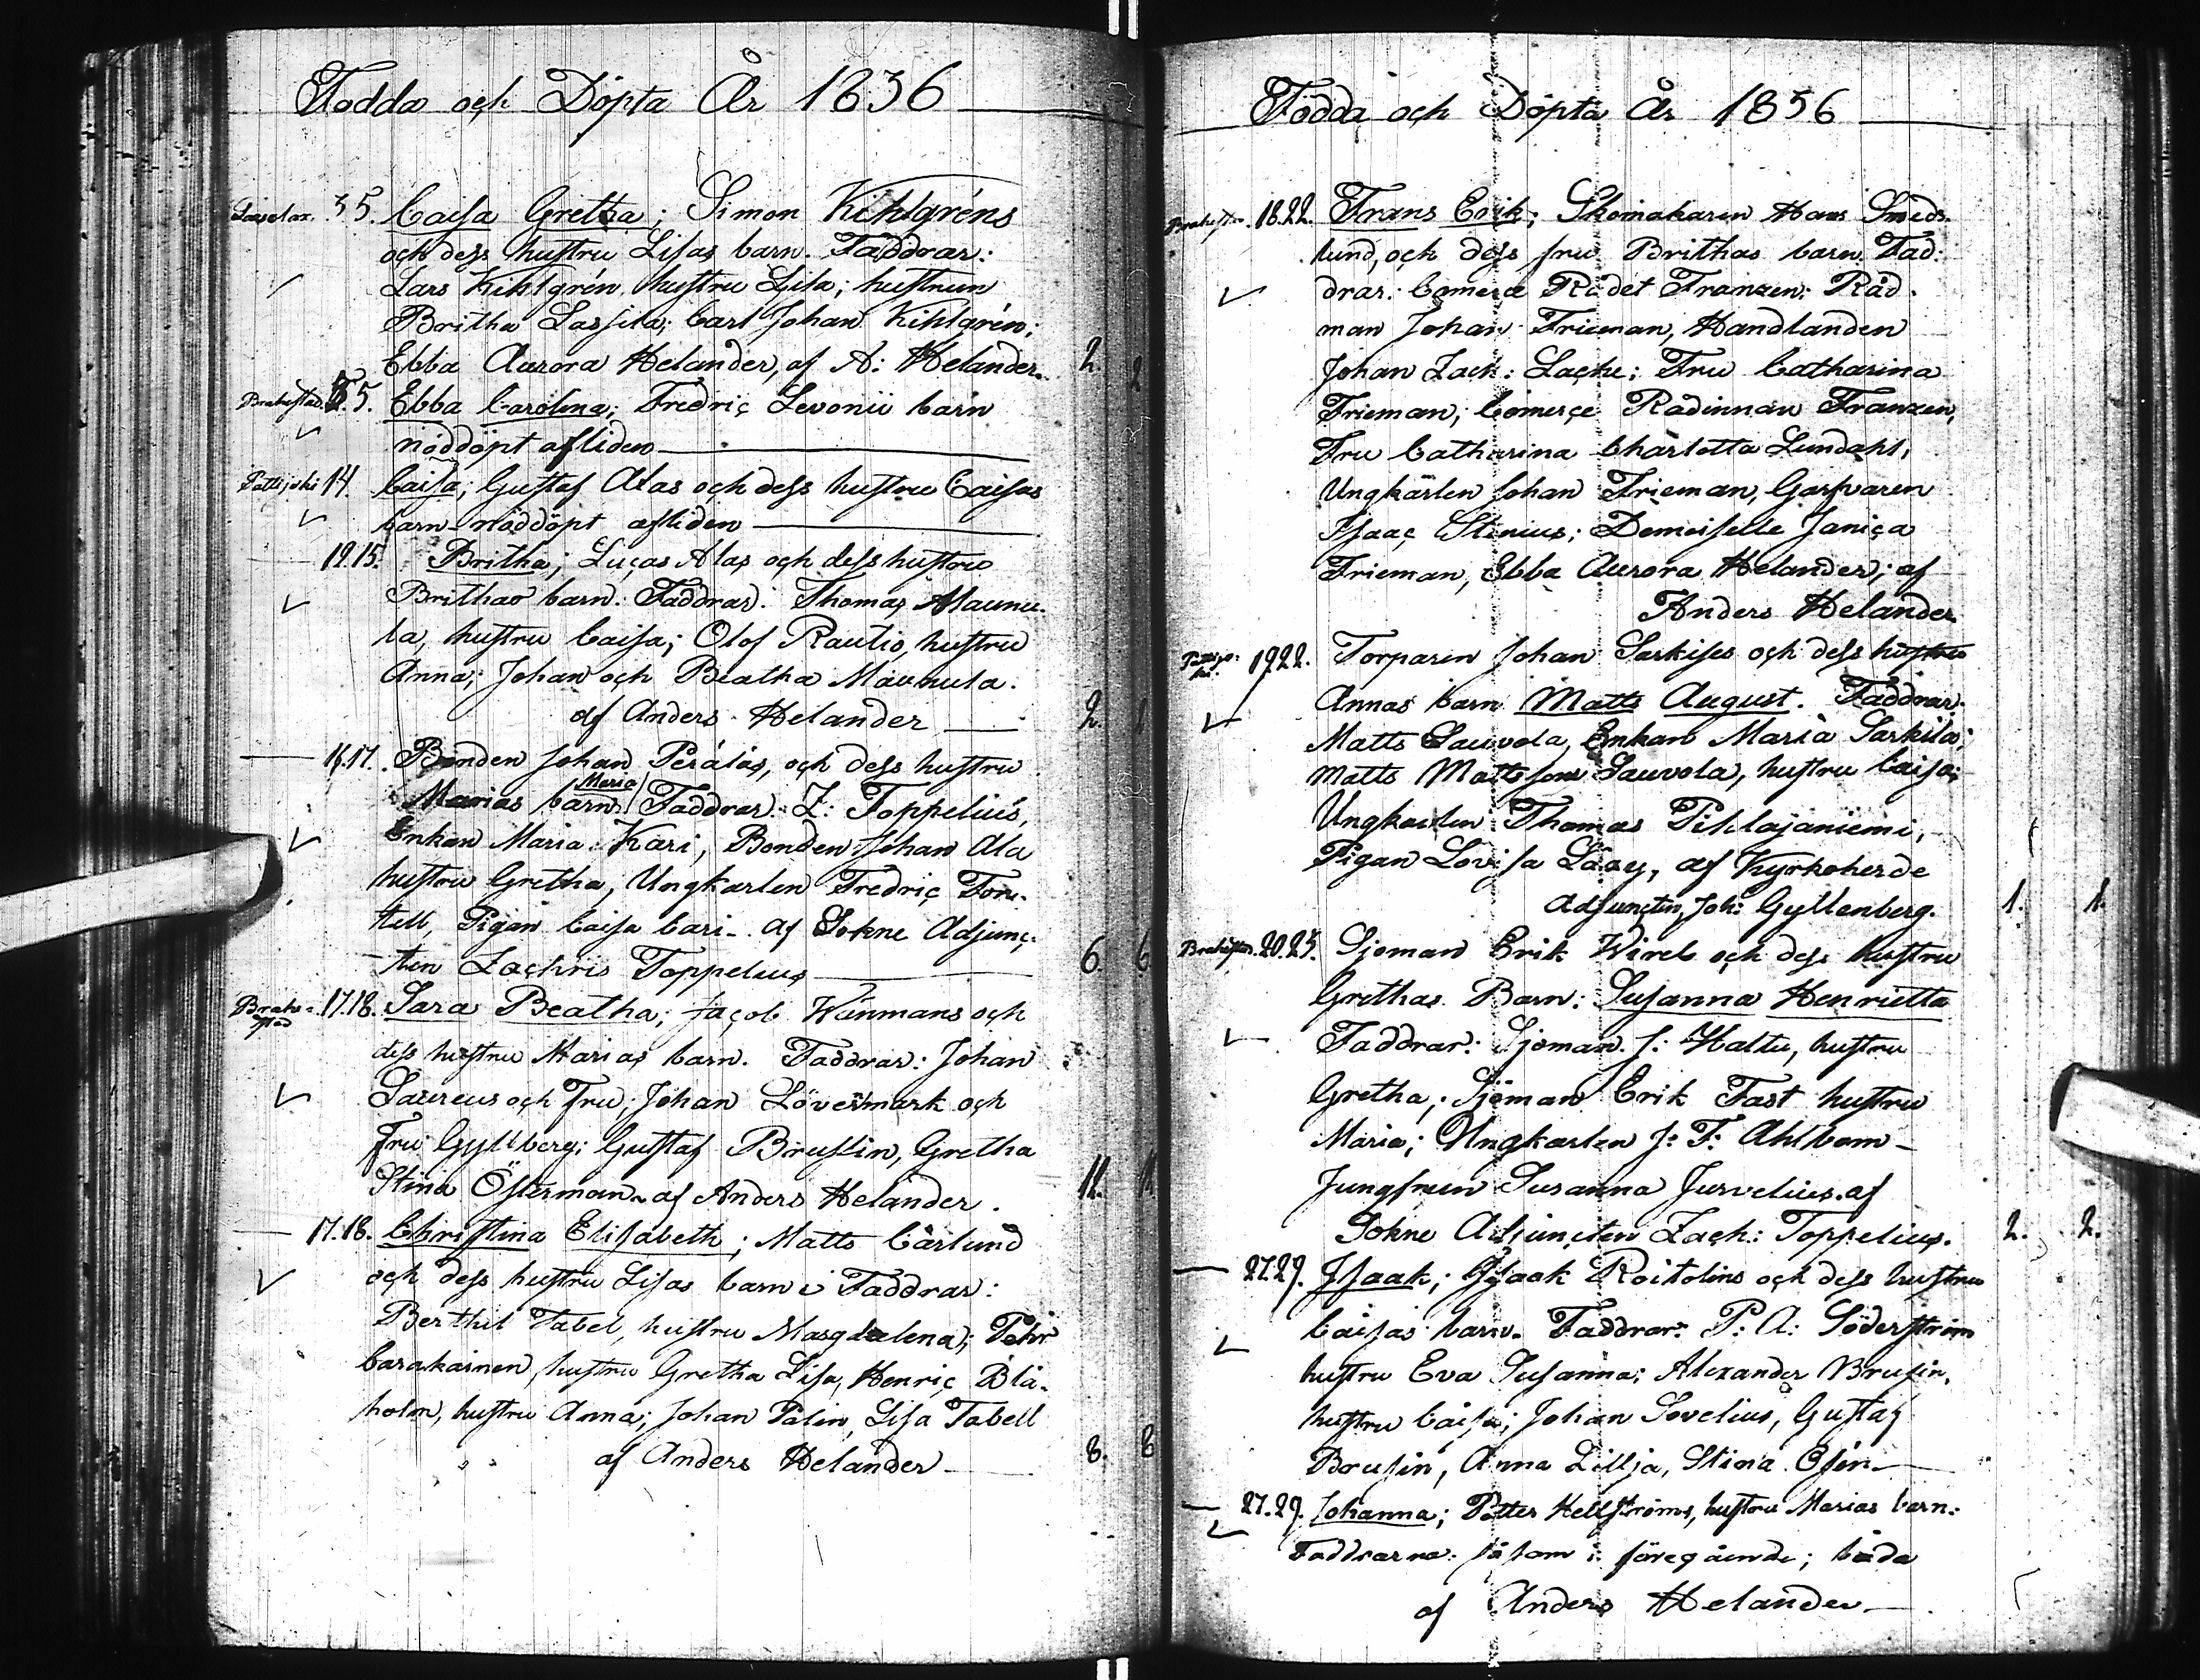 Födda och Döpta År 1836
35. Caisa Gretha; Simon Kihlgréns
och dess hustru Lisas barn. Faddrar:
Lars Kihlgrén hustru Lisa; hustrun
Britha Lassila; Carl Johan Kihlgrén;
Ebba Aurora Helander, af A: Helander. 2. 2
Brahestad. 5. Ebba Carolina; Fredric Levonii barn
nöddöpt afliden
Pattijoki 14. Caisa; Gustaf Alas och dess hustru Caisas
barn nöddöpt afliden
12.15. Britha; Lucas Alas och dess hustru
Brithas barn. Faddrar: Thomas Maunu-
la, hustru Caisa; Olof Rautio, hustru
Anna; Johan och Beatha Maunula.
af Anders Helander 2.
16.17. Bonden Johan Perälas, och dess hustru
Marias barn Maria Faddrar: Z: Toppelius,
Enkan Maria Kari, Bonden Johan Ala
hustru Gretha, Ungkarlen Fredric Fon-
tell, Pigan Caisa Cari. af Sokne Adjunc-
ten Zachris Toppelius 6. 6
Brahe-
stad 17.18. Sara Beatha; Jacob Wänmans och
dess hustru Marias barn. Faddrar: Johan
Saureus och Fru; Johan Lövenmark och
Fru Gyllberg; Gustaf Brusiin, Gretha
Stina Österman af Anders Helander. 11. 11
17.18. Christina Elisabeth; Matts Carlund
och dess hustru Lisas barn; Faddrar:
Berthil Tabel, hustru Magdalena; Pehr
Carakainen, hustru Gretha Lisa, Henric Blå-
holm, hustru Anna; Johan Palin, Lisa Tabell
af Anders Helander 8. 8
Födda och Döpta År 1836
18.22. Frans Erik; Skomakaren Hans Smeds-
lund, och dess fru Brithas barn. Fad-
drar: Comerce Rådet Franzen; Råd-
man Johan Frieman, Handlanden
Johan Zach: Lacke; Fru Catharina
Frieman; Comerce Rådinnan Franzen,
Fru Catharina Charlotta Lundahl,
Ungkarlen Johan Frieman, Garfvaren
Isaac Stenius; Demoiselle Janica
Frieman, Ebba Aurora Helander; af
Anders Helander
19.22. Torparen Johan Sarkilas och dess hustru
Annas barn Matts August. Faddrar:
Matts Sauvola, Enkan Maria Sarkila;
Matts Mattsson Sauvola, hustru Caisa;
Ungkarlen Thomas Pihlajaniemi,
Pigan Lovisa Lääy, af Kyrkoherde
Adjuncten, Joh: Gyllenberg. 1. 1.
Brahestad. 20.25. Sjöman Erik Wirels och dess hustru
Grethas Barn: Susanna Henrietta
Faddrar: Sjöman J: Haltu, hustru
Gretha; Sjöman Erik Fast hustru
Maria; Ungkarlen J: F: Ahlbom
Jungfrun Susanna Jurvelius. af
Sokne Adjuncten Zach: Toppelius. 2. 2.
27.29. Isaak; Isaak Roitolins och dess hustru
Caisas barn. Faddrar: P: A: Söderström
hustru Eva Susanna; Alexander Brusin,
hustru Caisa; Johan Sovelius, Gustaf
Brusin, Anna Lillja, Stina Osin
27.29. Johanna; Petter Hellströms, hustru Marias barn:
Faddrarna: såsom i föregående; båda
af Anders Helander